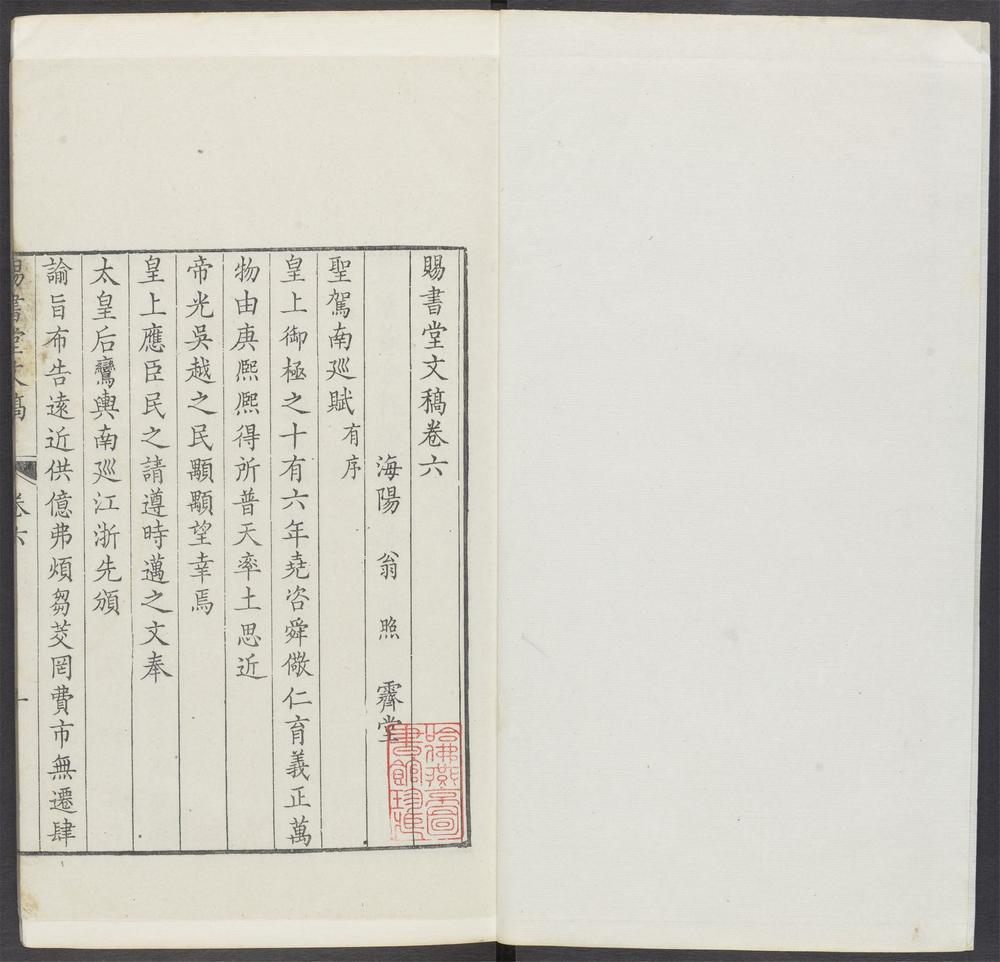 賜書堂文稿卷六
海陽　翁　照　霽堂
聖駕南廵賦有序
皇上御極之十有六年堯咨舜儆仁育義正萬
物由庚熈熈得所普天率土思近
帝光吳越之民顒顒望幸焉
皇上應臣民之請遵時邁之文奉
太皇后鸞輿南廵江浙先頒
諭旨布告遠近供億弗煩芻茭罔費市無遷肆
賜書堂文稿
卷六
一
哈佛燕京圖
書館珍藏